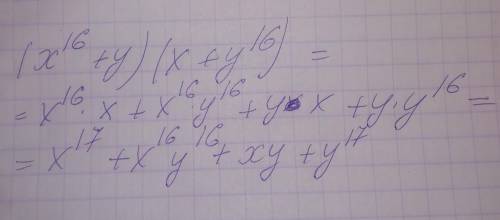 (x¹⁶ + y)(x + y¹⁶) =
= x¹⁶ · x + x¹⁶ · y¹⁶ + y · x + y · y¹⁶ =
= x¹⁷ + x¹⁶ y¹⁶ + xy + y¹⁷